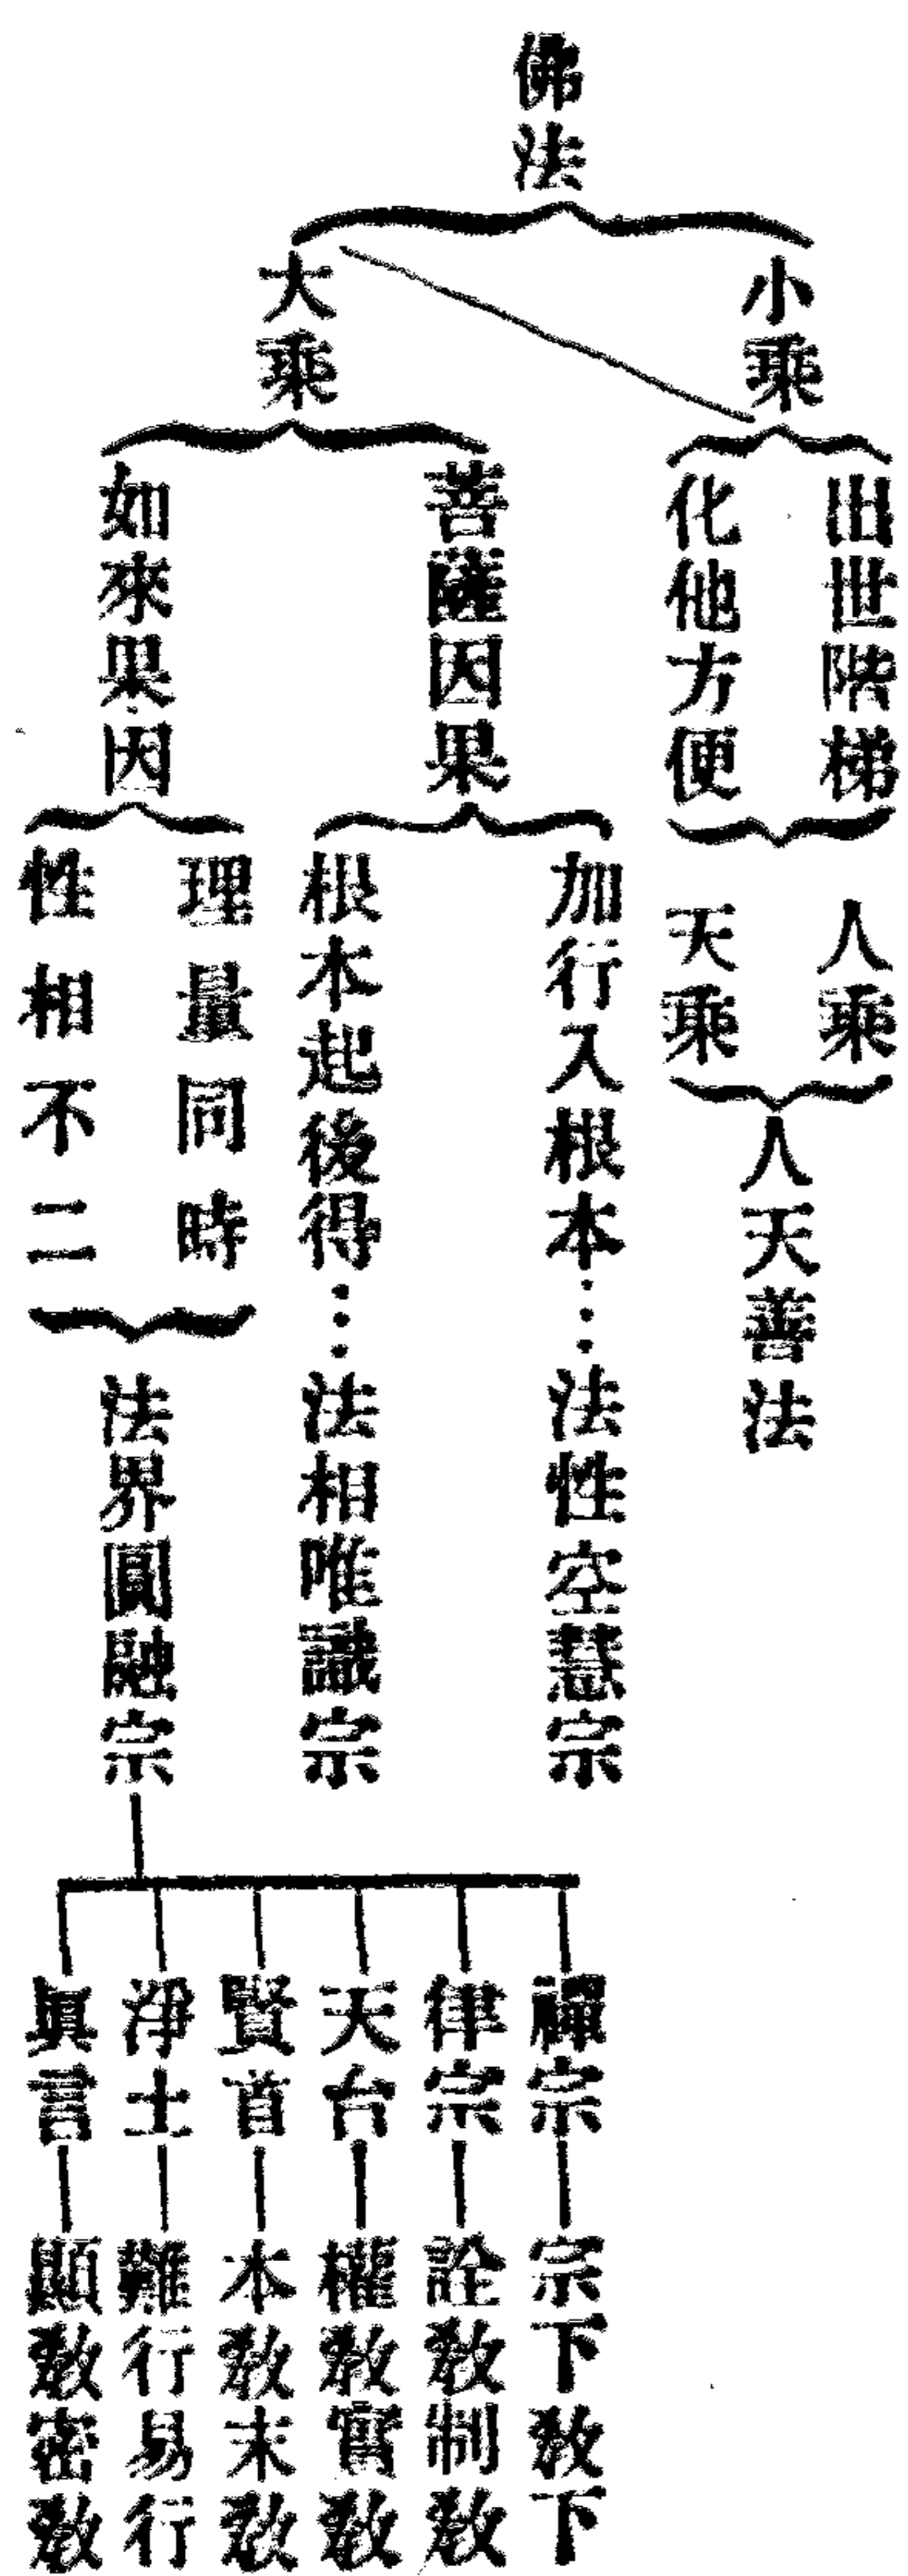 佛法
小乘
大乘
出世階梯
化他方便
菩薩因果
如來果因
人乘
天乘
人天善法
加行入根本…法性空慧宗
根本起後得…法相唯識宗
理量同時
性相不二
法界圓融宗
禪宗
宗下教下
律宗
詮教制教
天台
權教實教
賢首
本教末教
淨土
難行易行
眞言
顯教密教